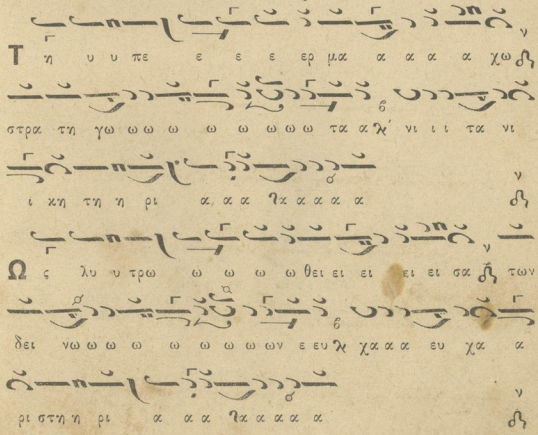 Τ η υ υ πε ε ε ε ερ μα α α α α χω
στρα τη γω ω ω ω ω ω ω ω ω τα α νι ι ι τα νι
ι κη τη η ρι α α α α α α α α
Ω ς λυ υ τρω ω ω ω ω θει ει ει ει ει σα των
δει νω ω ω ω ω ω ω ω ων ε ευ χα α α ευ χα α
ρι στη η ρι α α α α α α α α